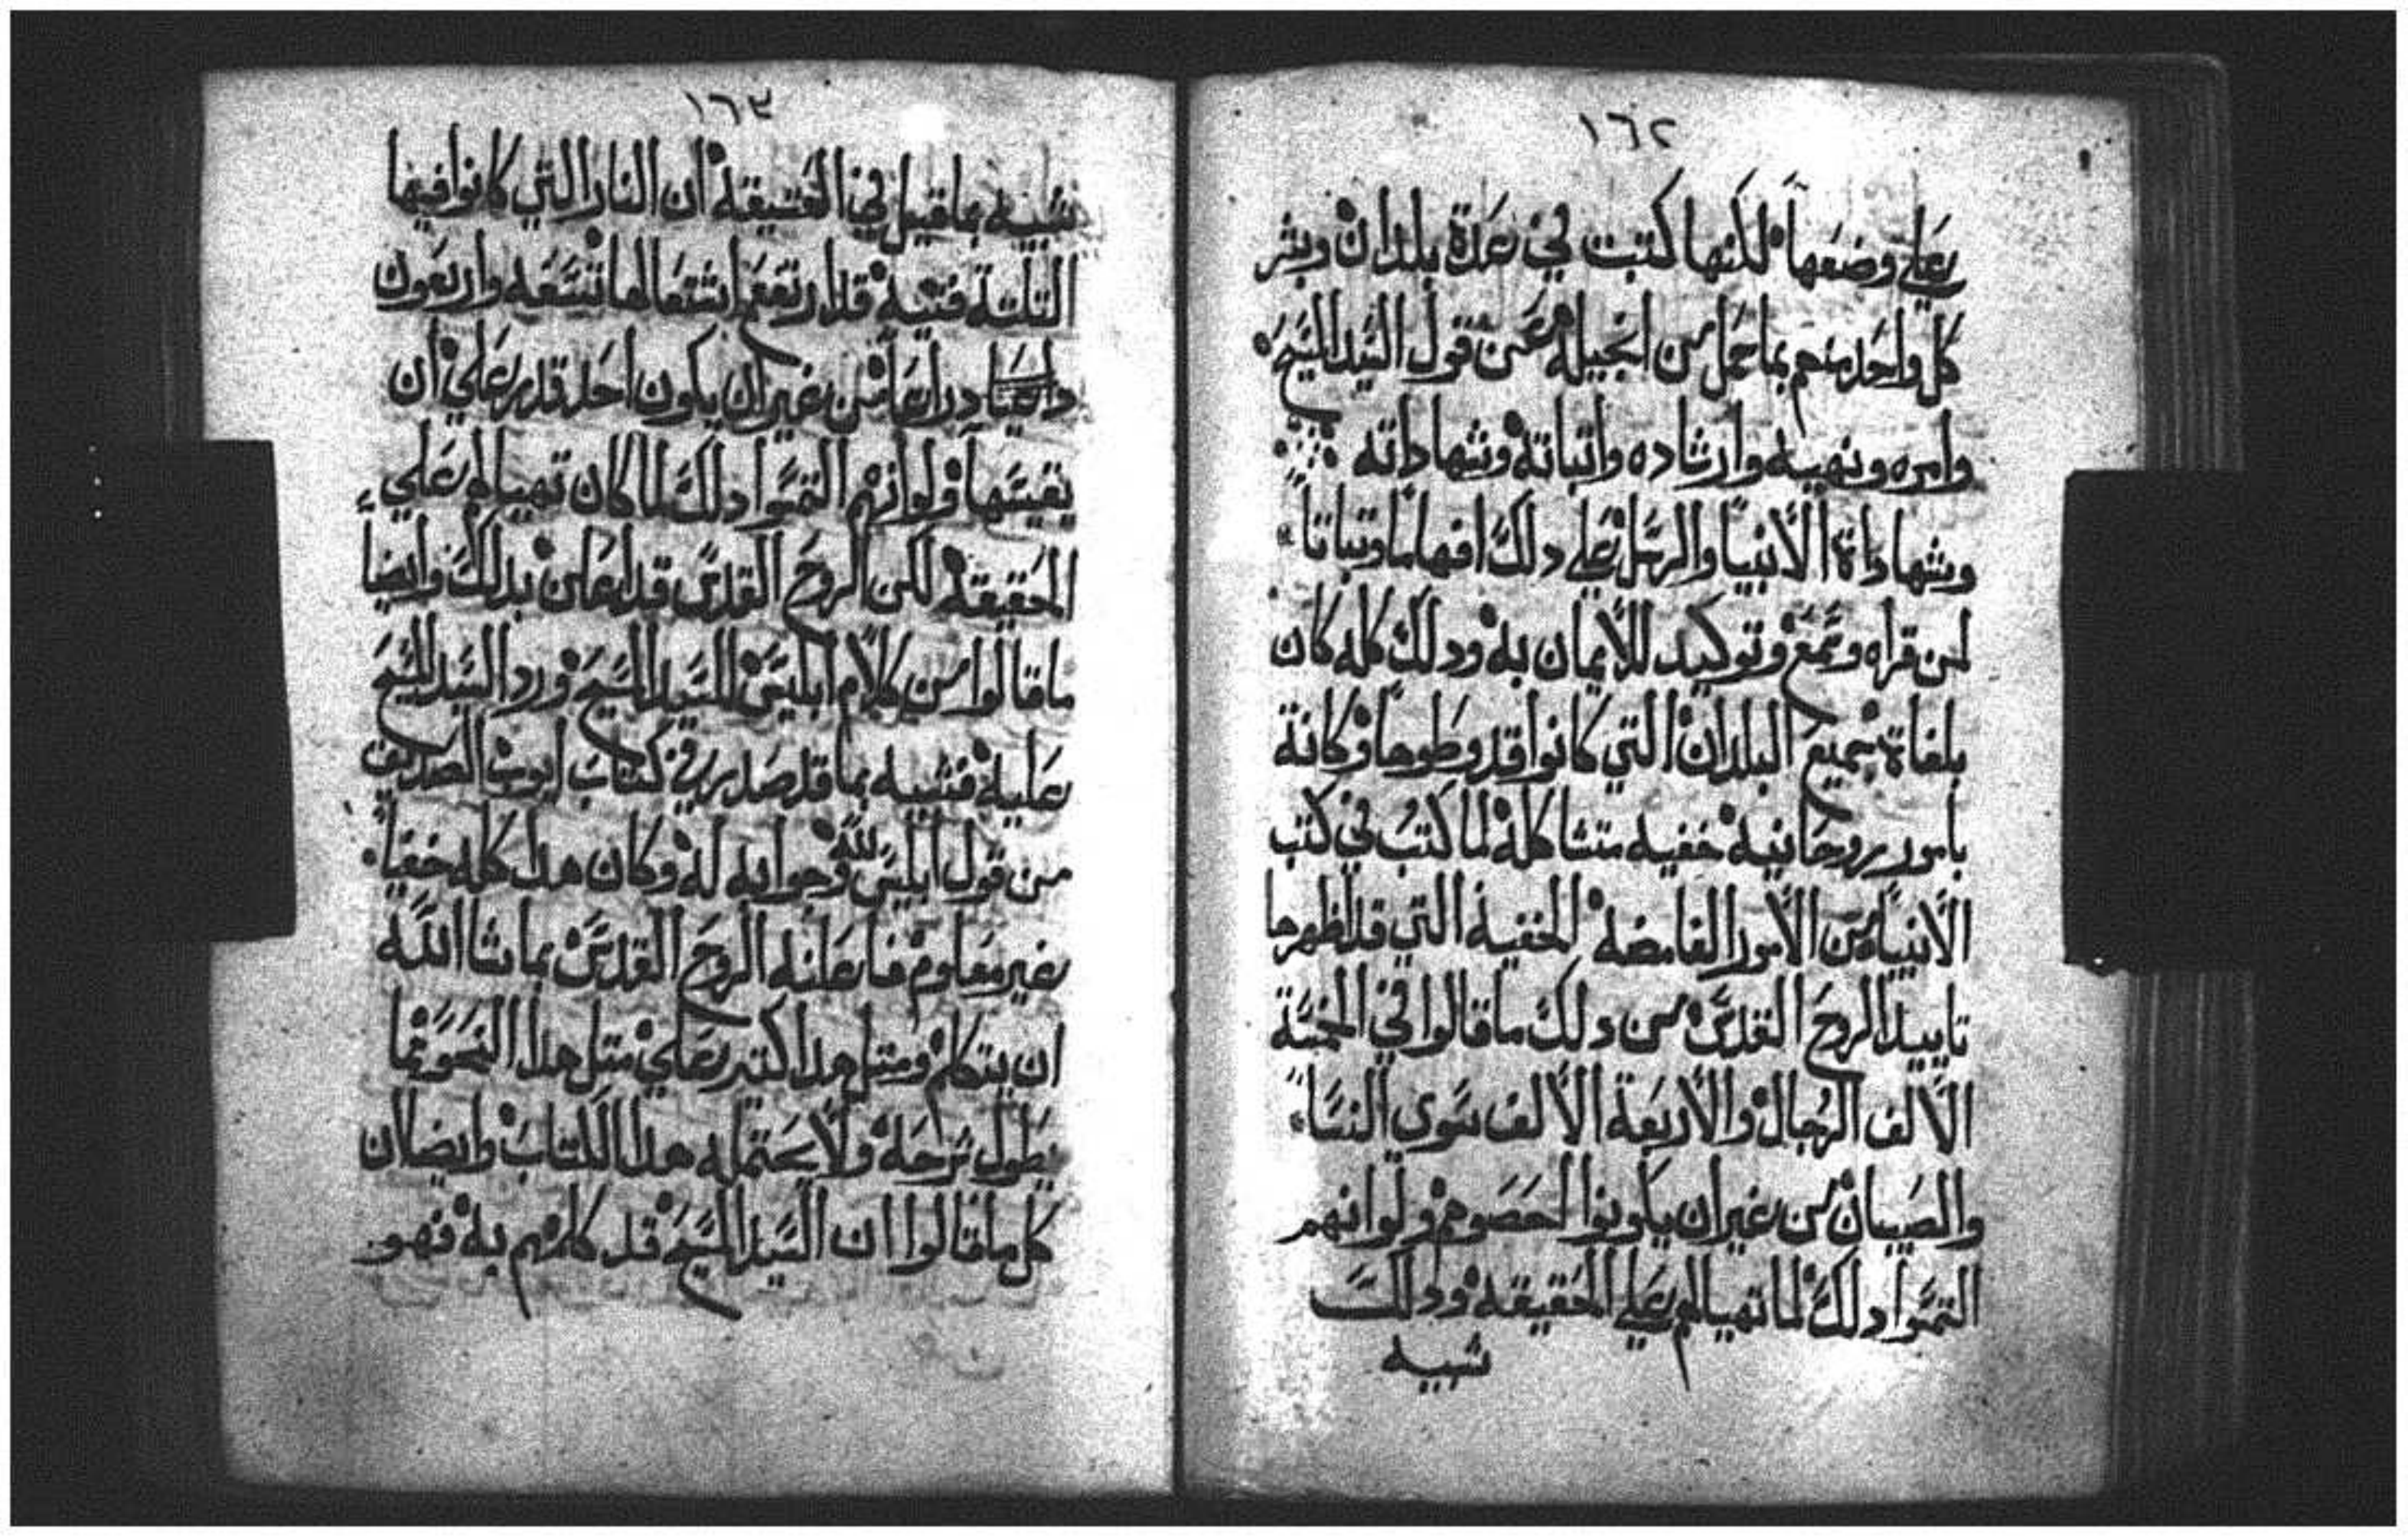 ١٦٢
علي وضعها لكنها كتبت في عدة بلدان وبشر
كل واحد منهم بما حمل من انجيله عن قول السيد المسيح
وامره ونهيه وارشاده واتباته وشهاداته
وشهاداة الأنبيا والرسل علي دلك افهاما وتباتاً
لمن قراه وسمع وتوكيد للأيمان به ودلك كله كان
بلغاة جميع البلدان التي كانوا قد وطوها وكانة
بامور روحانيه خفيه متشاكله لما كتب في كتب
الأنبيا من الأمور الغامضه الخفيه التي قد اظهرها
تاييد الروح القدس من دلك ما قالوا في الخمسة
الألف الرجال والأربعة الألف سوي النسا
والصبيان من غير ان يكونوا احصوهم ولو انهم
التمسوا دلك لما تهيا لهم علي الحقيقه ودلك
شبيه
١٦٣
شبيه بما قيل في الحقيقه ان النار التي كانوا فيها
التلته فتيه قد ارتفع اشتعالها تسعه واربعون
دراعاً من غير ان يكون احد قدر علي ان
يقيسها ولو انهم التمسوا دلك لما كان تهيا لهم علي
الحقيقه لكن الروح القدس قد اعلن بدلك وايضاً
ما قالوا من كلام ابليس للسيد المسيح ورد السيد المسيح
عليه فشبيه بما قد صدر في كتاب ايوب الصديق
من قول ابليس لله وجوابه له وكان هدا كله خفياً
غير معلوم فاعلنه الروح القدس بما شا الله
ان يتكلم ومتل هدا كتير علي متل هدا النحو مما
يطول شرحه ولا يحتمله هدا الكتاب وايضا ان
كل ما قالوا ان السيد المسيح قد كلمهم به فهو